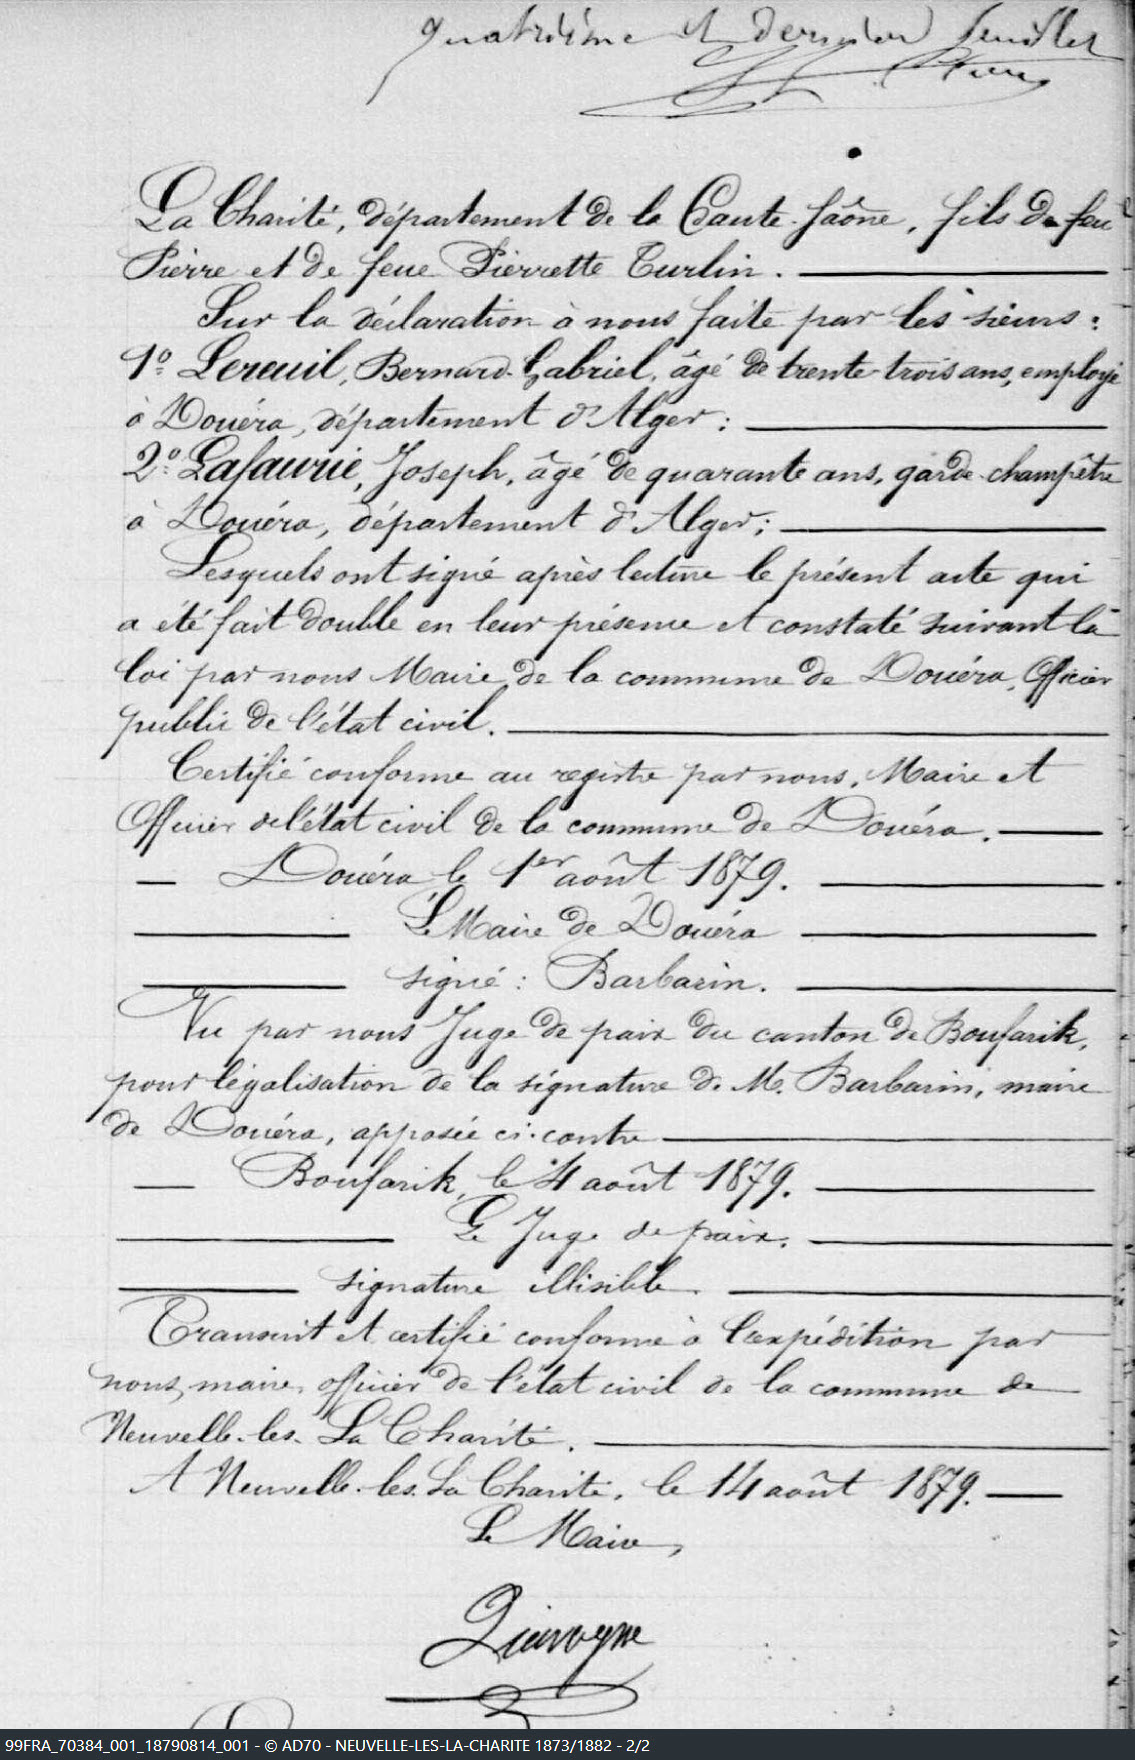 quatrième et dernier feuillet
La Charité, département de la Haute-Saône, fils de feu
Pierre et de feue Pierrette Turlin.
Sur la déclaration à nous faite par les sieurs :
1º. Lereuil, Bernard-Gabriel, âgé de trente-trois ans, employé
à Douéra, département d'Alger ;
2º. Lafaurie, Joseph, âgé de quarante ans, garde-champêtre
à Douéra, département d'Alger ;
Lesquels ont signé après lecture le présent acte qui
a été fait double en leur présence et constaté suivant la
loi par nous Maire de la commune de Douéra, Officier
public de l'état civil.
Certifié conforme au registre par nous, Maire et
Officier de l'état civil de la commune de Douéra.
Douéra le 1er août 1879.
Le Maire de Douéra
signé : Barbarin.
Vu par nous Juge de paix du canton de Boufarik,
pour légalisation de la signature de M. Barbarin, maire
de Douéra, apposée ci-contre
Boufarik, le 4 août 1879.
Le Juge de paix.
signature illisible.
Transcrit et certifié conforme à l'expédition par
nous, maire, officier de l'état civil de la commune de
Neuvelle-les-La Charité.
A Neuvelle-les-La Charité, le 14 août 1879.
Le Maire,
99FRA_70384_001_18790814_001 - © AD70 - NEUVELLE-LES-LA-CHARITE 1873/1882 - 2/2